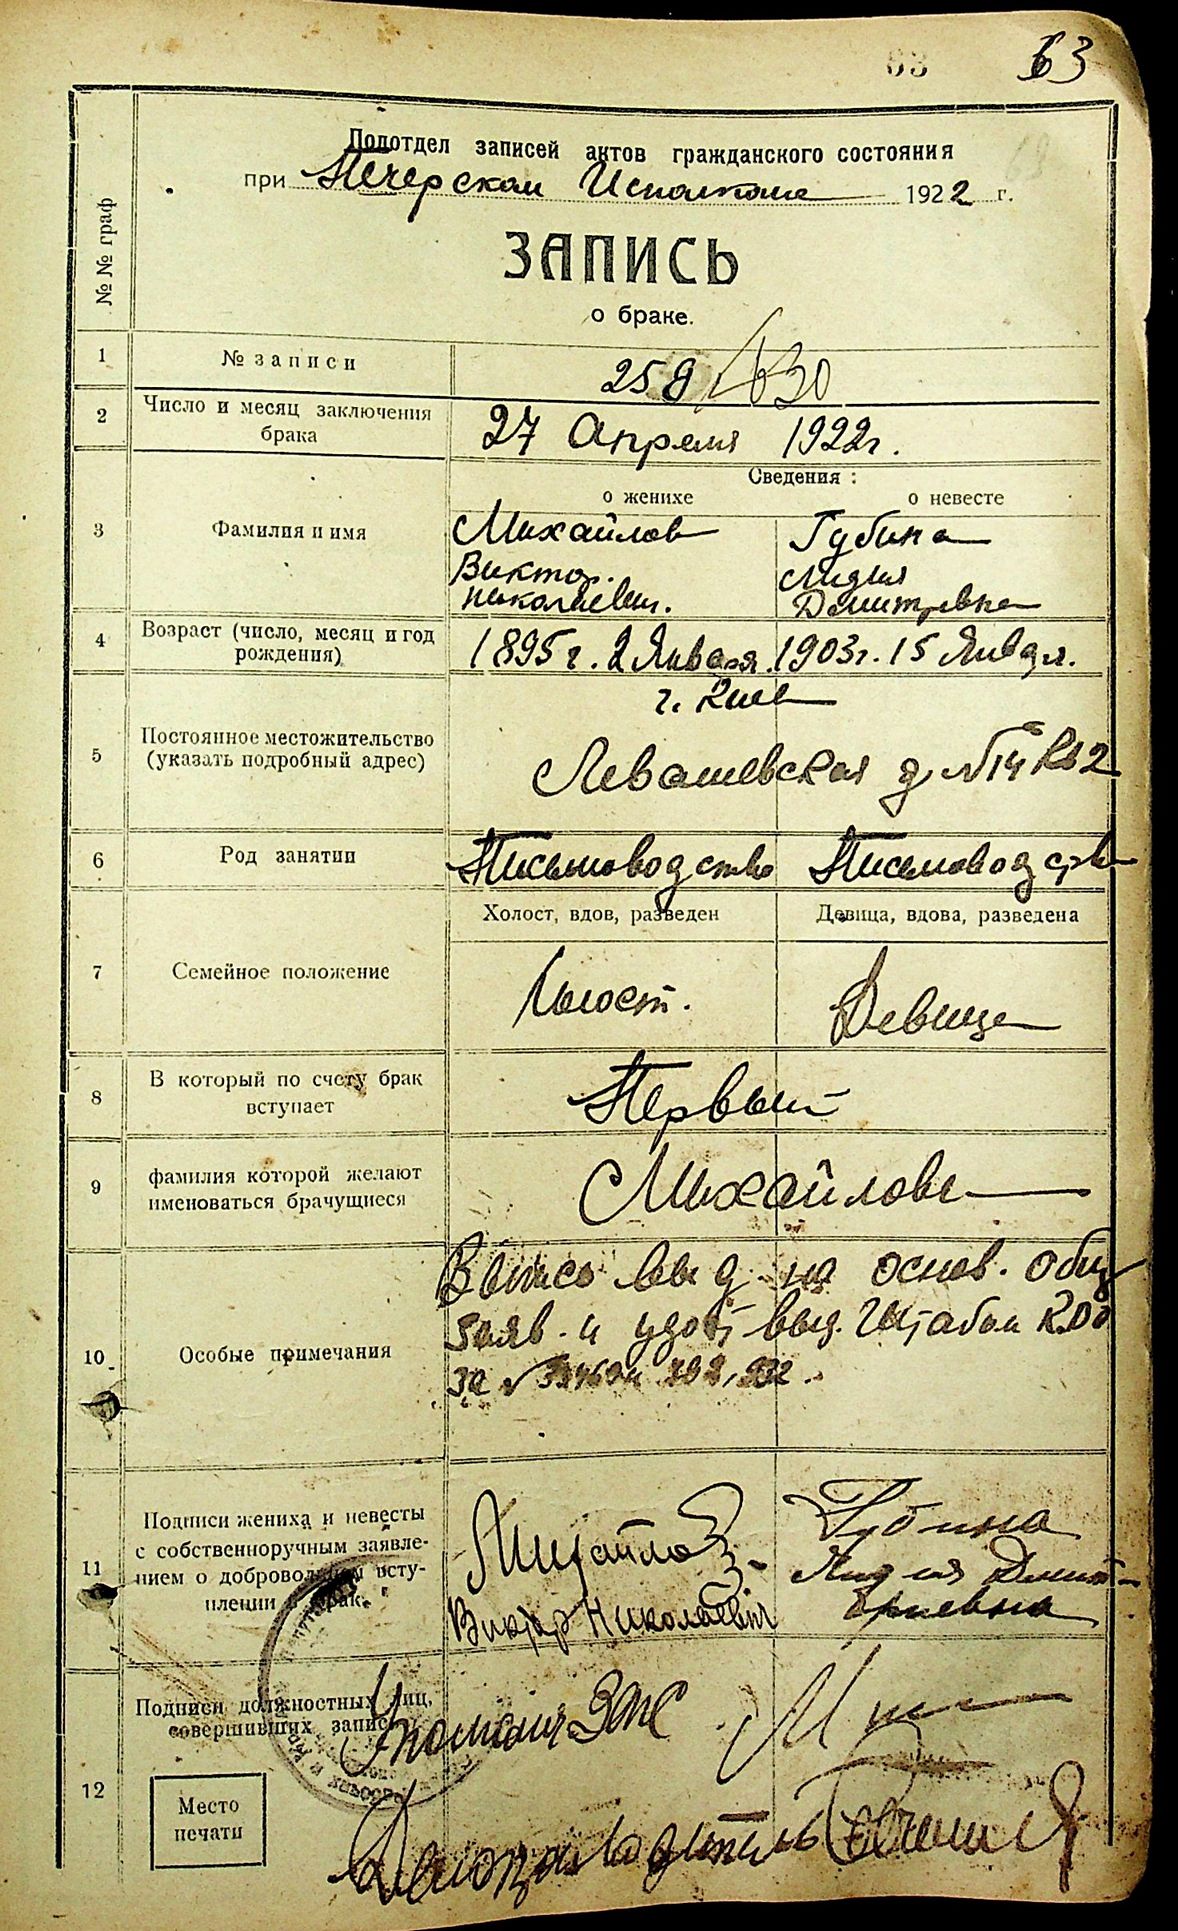 63
63
Подотдел записей актов гражданского состояния
при Печерском Исполкоме 1922 г.
№ № граф
ЗАПИСЬ
о браке.
1 № записи 258/630
2 Число и месяц заключения
брака
27 Апреля 1922г.
Сведения:
о женихе о невесте
3 Фамилия и имя
Михайлов Губина
Виктор. Лидия
Николаевич. Дмитревна
4 Возраст (число, месяц и год
рождения)
1895г. 2 Января 1903г. 15 Январ.
г. Киев
5 Постоянное местожительство
(указать подробный адрес)
Левашевская д. №14 кв 2
6 Род занятии Письмоводство Письмоводств
Холост, вдов, разведен Девица, вдова, разведена
7 Семейное положение Холост. Девица
8 В который по счету брак
вступает
Первый
9 фамилия которой желают
именоваться брачущиеся
Михайловы
10 Особые примечания
на основ. общ
заяв. и удот выд. Штабом
за №
11 Подписи жениха и невесты
с собственноручным заявле-
нием о добровольном всту-
плении в брак.
Михайлов Губина
Виктор Николаевич Лидия Дмит-
риевна
12 Подписи должностных лиц,
совершивших запись
ЗАГС
Делопроизводитель
Место
печати